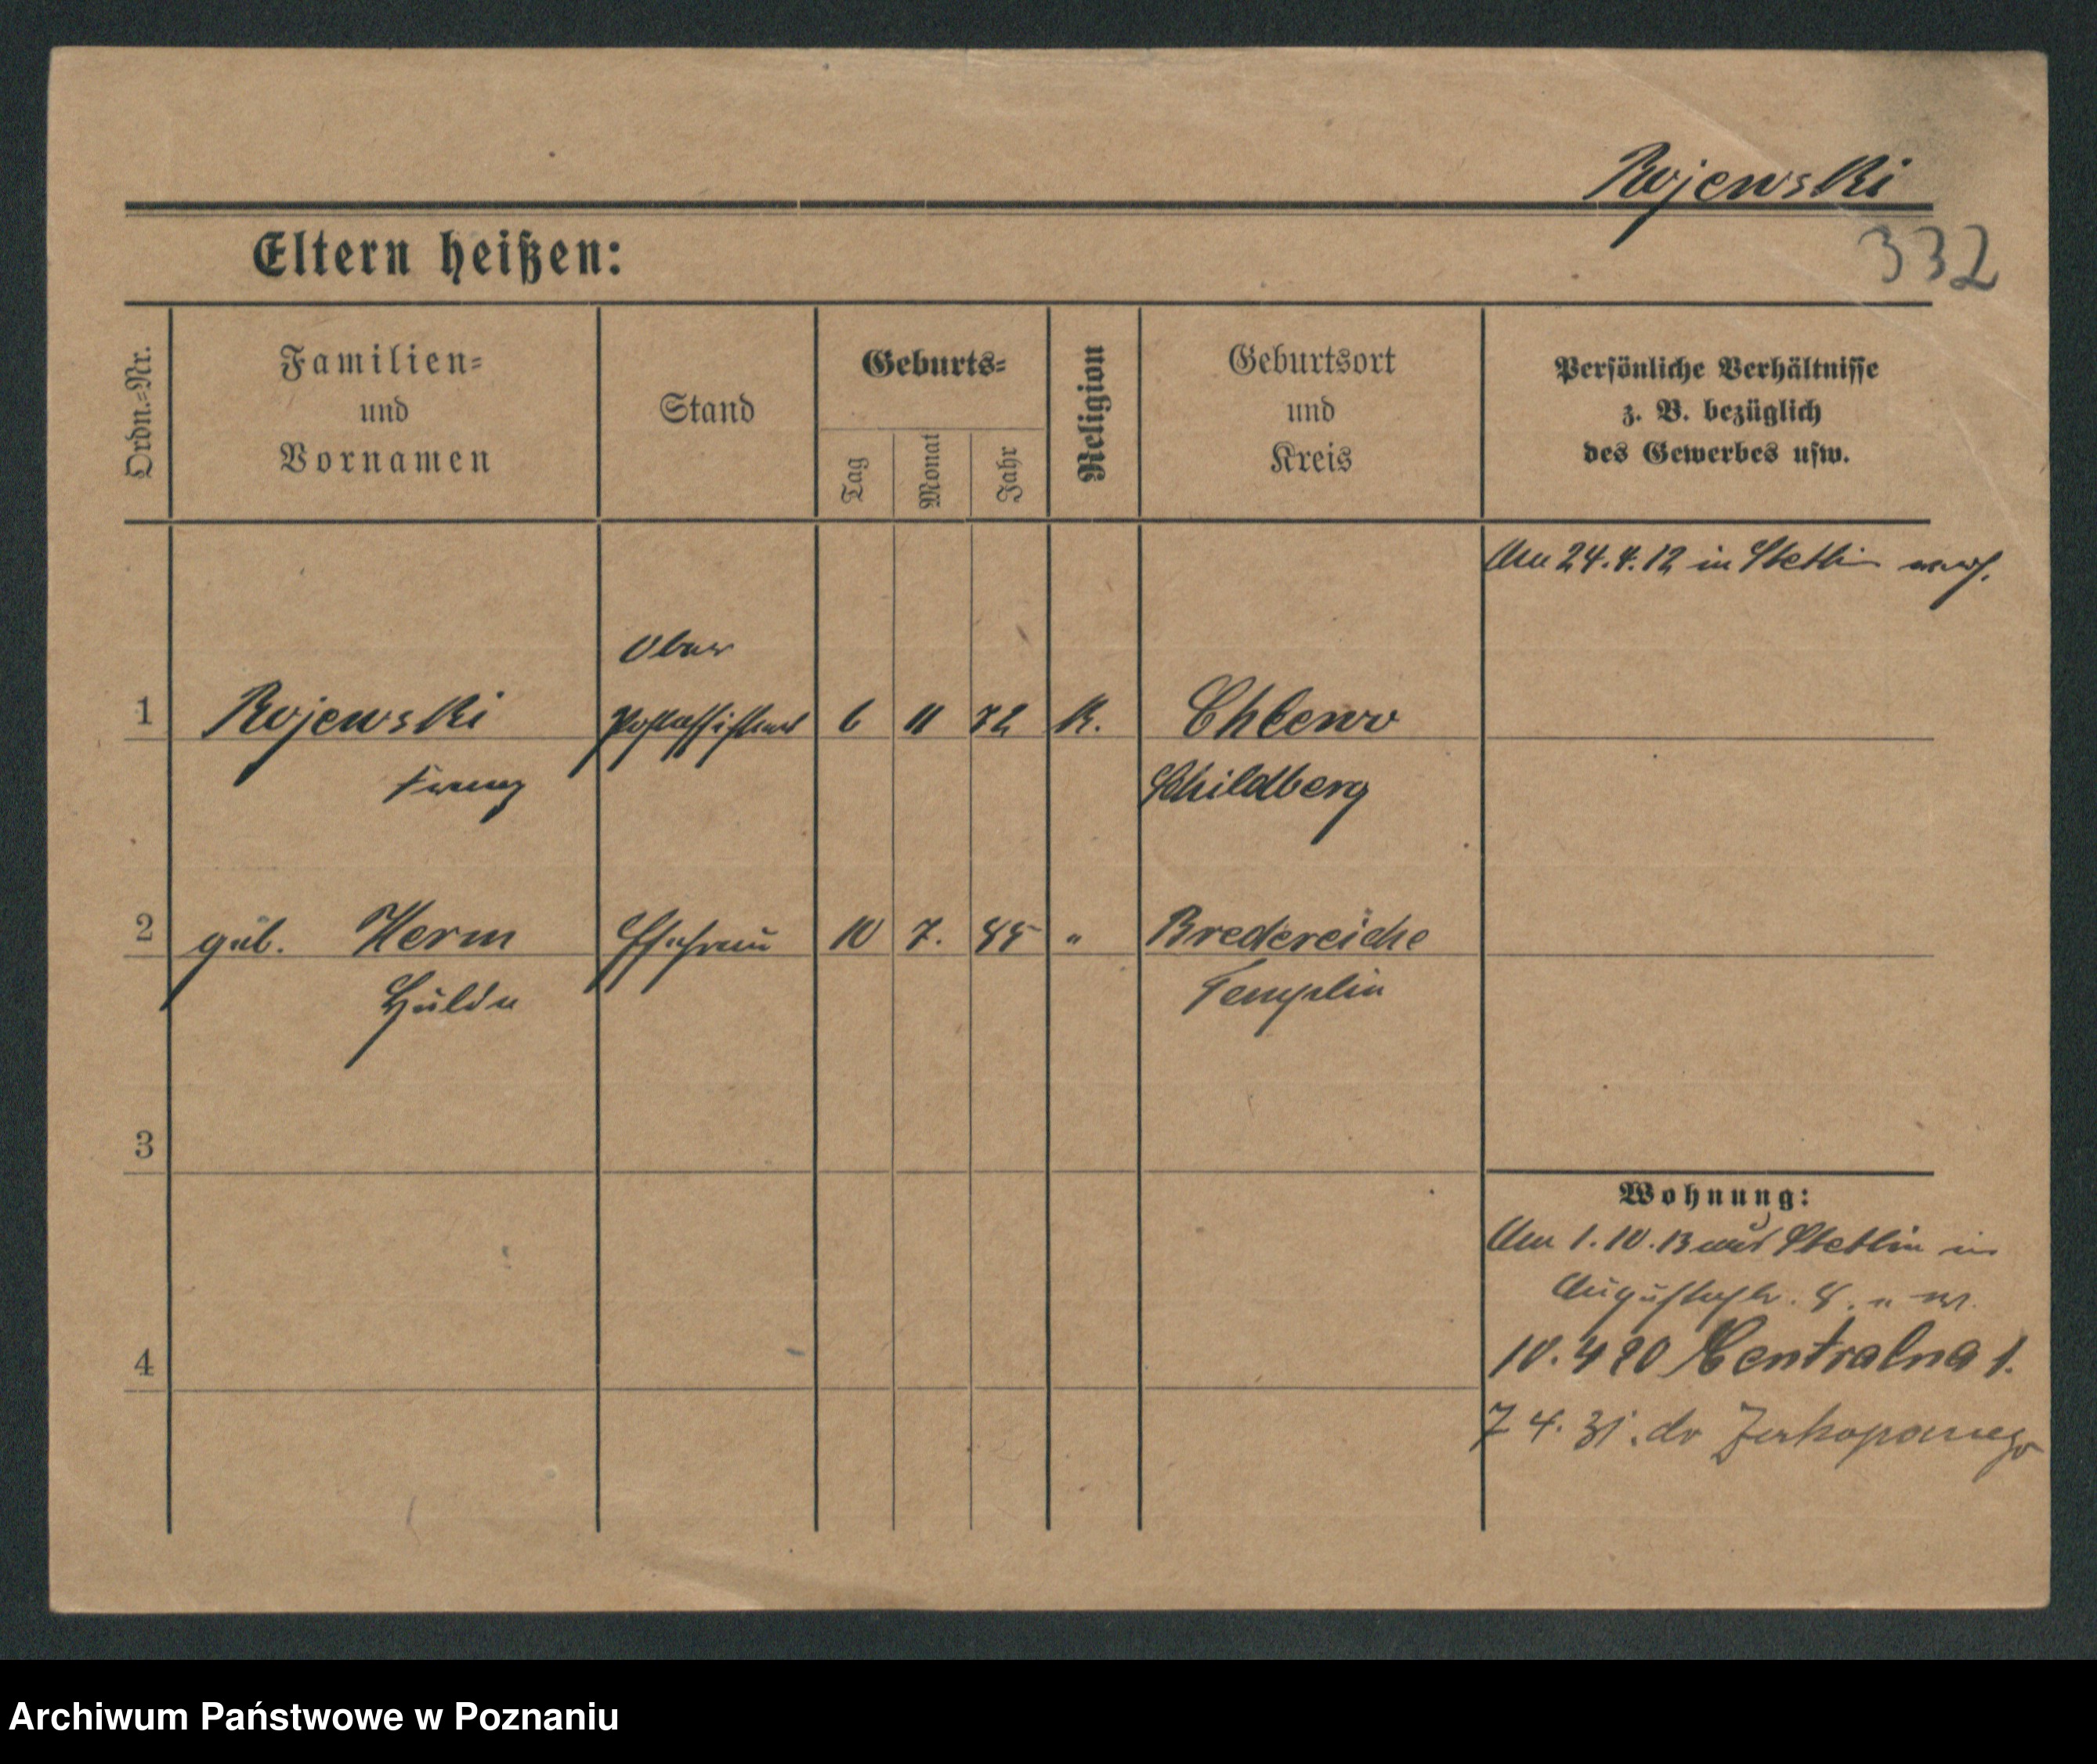 Rojewski
332
Eltern heißen:
Ordn.-Nr.
Familien-
und
Vornamen
Stand
Geburts-
Tag
Monat
Jahr
Religion
Geburtsort
und
Kreis
Persönliche Verhältnisse
z. B. bezüglich
des Gewerbes usw.
Am 24.4.12 in Stettin
1 Rojewski
Franz
Ober
Postassistent
6 11 72 K. Chlewo
Schildberg
2 geb. Herm Ehefrau 10 7. 85 " Bredereiche
Hulda
Templin
3
Wohnung:
Am 1.10.13 aus Stettin in
Augustastr. 8.
4
10.4 20 Centralna 1.
7 4. 31. do
Archiwum Państwowe w Poznaniu